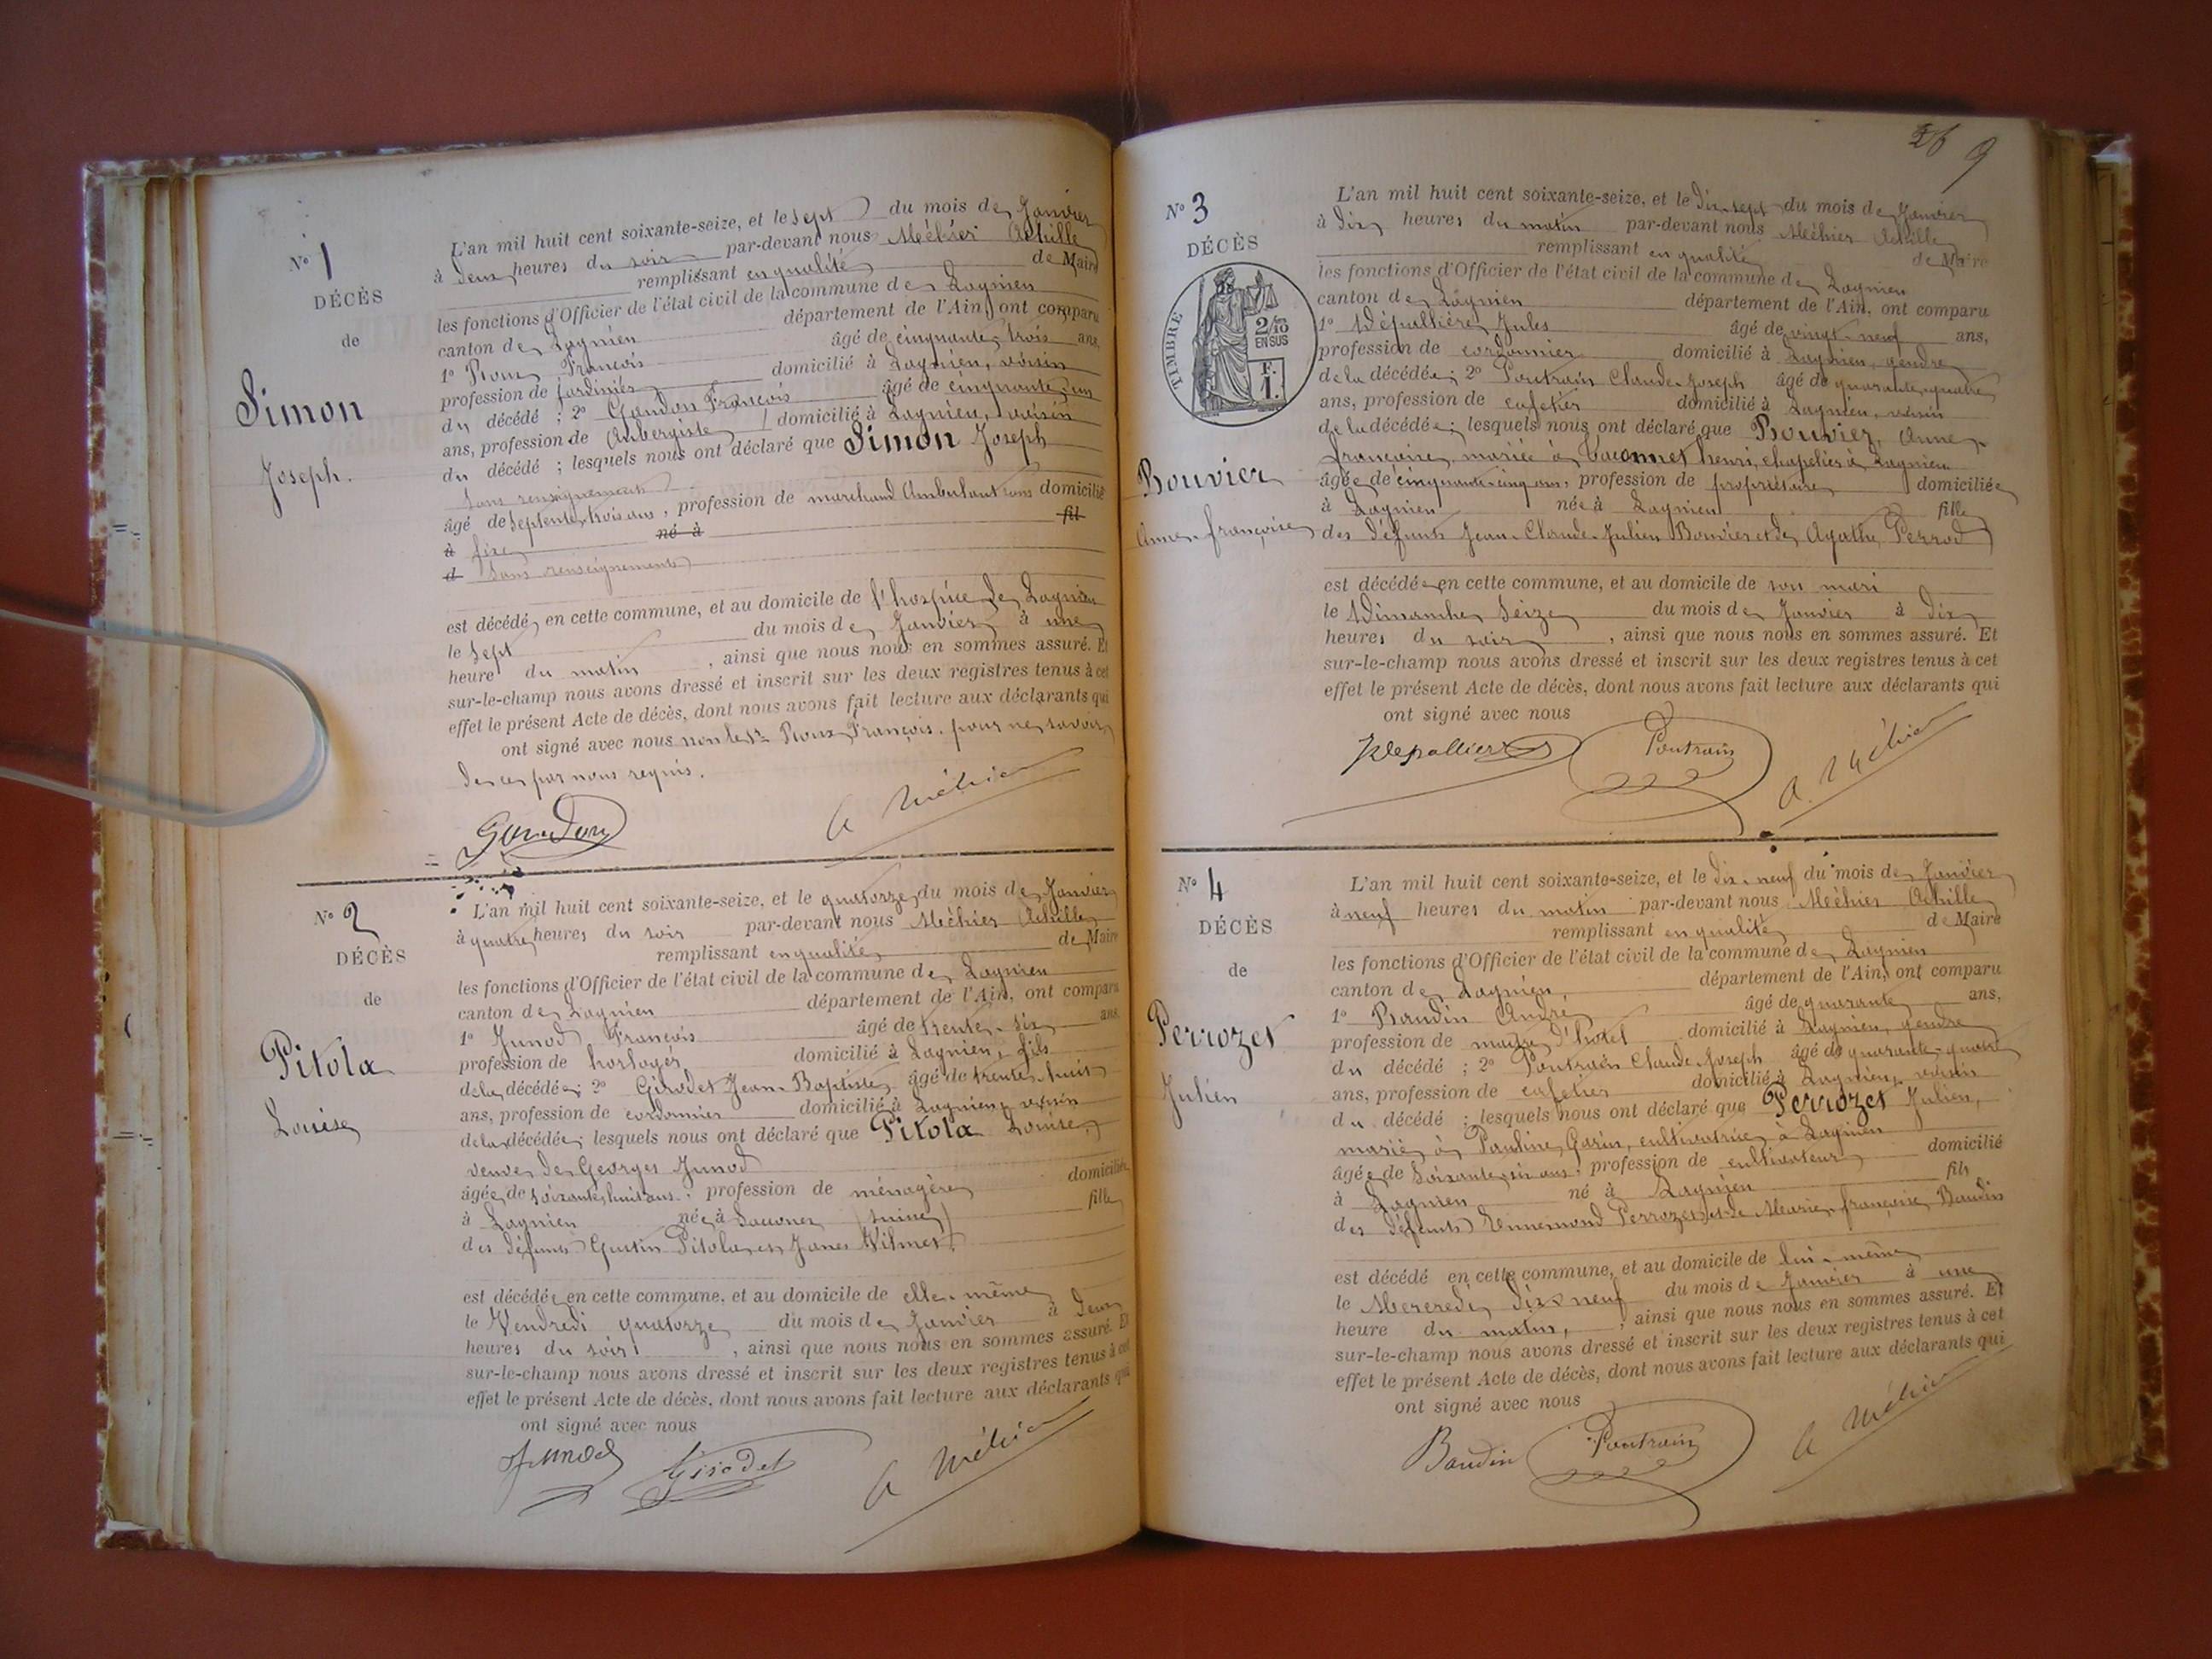 N° 1
DÉCÈS
de
Simon
Joseph.
L'an mil huit cent soixante-seize, et le sept du mois de Janvier
à deux heures du soir par-devant nous Méhier Achille
remplissant en qualité de Maire
les fonctions d'Officier de l'état civil de la commune de Lagnieu
canton de Lagnieu département de l'Ain, ont comparu
1° Roux François âgé de cinquante trois ans,
profession de Jardinier domicilié à Lagnieu, voisin
du décédé ; 2° Gandon François âgé de cinquante un
ans, profession de Aubergiste domicilié à Lagnieu, voisin
du décédé ; lesquels nous ont déclaré que Simon Joseph
sans renseignements
âgé de Septente trois ans, profession de marchand Ambulant sans domicilié
à fixe né à fil
d sans renseignements
est décédé en cette commune, et au domicile de l'hospice de Lagnieu
le sept du mois de Janvier à une
heure du matin, ainsi que nous nous en sommes assuré. Et
sur-le-champ nous avons dressé et inscrit sur les deux registres tenus à cet
effet le présent Acte de décès, dont nous avons fait lecture aux déclarants qui
ont signé avec nous non le Sr Roux François. pour ne savoir
de ce par nous requis.
Gandon A Méhier
N° 2
DÉCÈS
de
Pitola
Louise
L'an mil huit cent soixante-seize, et le quatorze du mois de Janvier
à quatre heures du soir par-devant nous Méhier Achille
remplissant en qualité de Maire
les fonctions d'Officier de l'état civil de la commune de Lagnieu
canton de Lagnieu département de l'Ain, ont comparu
1° Junod François âgé de trente-six ans
profession de horloger domicilié à Lagnieu, fils
de la décédée ; 2° Girodet Jean-Baptiste âgé de trente-huit
ans, profession de cordonnier domicilié à Lagnieu, voisin
de la décédée ; lesquels nous ont déclaré que Pitola Louise,
veuve de Georges Junod
âgée de soixante huit ans, profession de ménagère domiciliée
à Lagnieu née à (suisse) fille
des défunts Pitola et
est décédée en cette commune, et au domicile de elle-même
le Vendredi quatorze du mois de Janvier à deux
heures du soir, ainsi que nous nous en sommes assuré. Et
sur-le-champ nous avons dressé et inscrit sur les deux registres tenus à cet
effet le présent Acte de décès, dont nous avons fait lecture aux déclarants qui
ont signé avec nous
Junod Girodet A Méhier
26 9
N° 3
DÉCÈS
TIMBRE
2/10 EN SUS
F. 1.
Bouvier
Anne-françoise
L'an mil huit cent soixante-seize, et le Dix-sept du mois de Janvier
à dix heures du matin par-devant nous Méhier Achille
remplissant en qualité de Maire
les fonctions d'Officier de l'état civil de la commune de Lagnieu
canton de Lagnieu département de l'Ain, ont comparu
1° Dépallière Jules âgé de vingt-neuf ans,
profession de cordonnier domicilié à Lagnieu, gendre
de la décédée ; 2° Poutrain Claude-Joseph âgé de quarante-quatre
ans, profession de cafetier domicilié à Lagnieu, voisin
de la décédée ; lesquels nous ont déclaré que Bouvier, Anne-
françoise, mariée à henri, chapelier à Lagnieu
âgée de cinquante-cinq ans, profession de propriétaire domiciliée
à Lagnieu née à Lagnieu fille
des défunts Jean-Claude-Julien Bouvier et de Agathe Perrod
est décédée en cette commune, et au domicile de son mari
le Dimanche Seize du mois de Janvier à Dix
heures du soir, ainsi que nous nous en sommes assuré. Et
sur-le-champ nous avons dressé et inscrit sur les deux registres tenus à cet
effet le présent Acte de décès, dont nous avons fait lecture aux déclarants qui
ont signé avec nous
Poutrain A. Méhier
N° 4
DÉCÈS
de
Perrozet
Julien
L'an mil huit cent soixante-seize, et le Dix-neuf du mois de Janvier
à neuf heures du matin par-devant nous Méhier Achille
remplissant en qualité de Maire
les fonctions d'Officier de l'état civil de la commune de Lagnieu
canton de Lagnieu, département de l'Ain, ont comparu
1° Baudin André âgé de quarante ans,
profession de maître d'hôtel domicilié à Lagnieu, gendre
du décédé ; 2° Poutrain Claude-Joseph âgé de quarante-quatre
ans, profession de cafetier domicilié à Lagnieu, voisin
du décédé ; lesquels nous ont déclaré que Perrozet Julien,
marié à Pauline Garin, cultivatrice à Lagnieu
âgée de Soixante-six ans, profession de cultivateur domicilié
à Lagnieu né à Lagnieu fils
des défunts Ennemond Perrozet et de Marie-françoise Baudin
est décédé en cette commune, et au domicile de lui-même
le Mercredi, dix neuf du mois de Janvier à une
heure du matin, ainsi que nous nous en sommes assuré. Et
sur-le-champ nous avons dressé et inscrit sur les deux registres tenus à cet
effet le présent Acte de décès, dont nous avons fait lecture aux déclarants qui
ont signé avec nous
Baudin Poutrain A Méhier